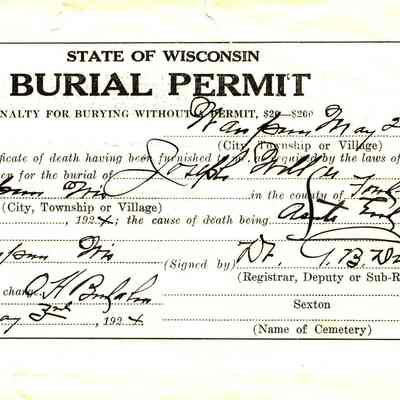 STATE OF WISCONSIN
BURIAL PERMIT
ENALTY FOR BURYING WITHOUT A PERMIT, $20—$200
Waupun May 2
(City, Township or Village)
ificate of death having been furnished to me as required by the laws of
en for the burial of Joseph
Wis in the county of
(City, Township or Village)
, 1924; the cause of death being
Wis (Signed by) Dr. T. B.
(Registrar, Deputy or Sub-R
charge.
Sexton
ay 3rd, 1924
(Name of Cemetery)